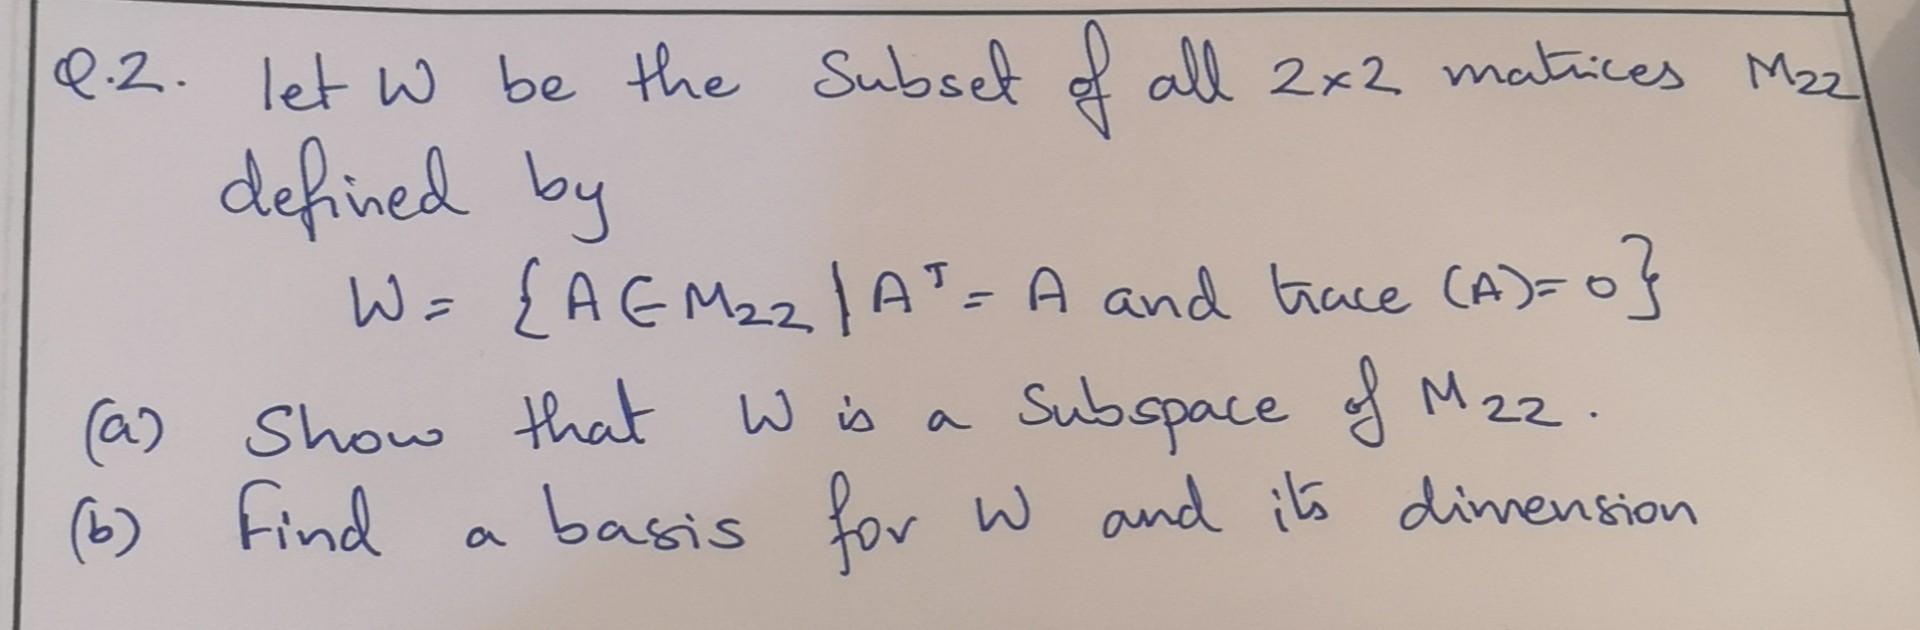 Q.2. let W be the Subset of all 2×2 matrices M₂₂
defined by
W = {A ∈ M₂₂ | Aᵀ = A and trace (A) = 0}
(a) Show that W is a Subspace of M₂₂.
(b) Find a basis for W and its dimension